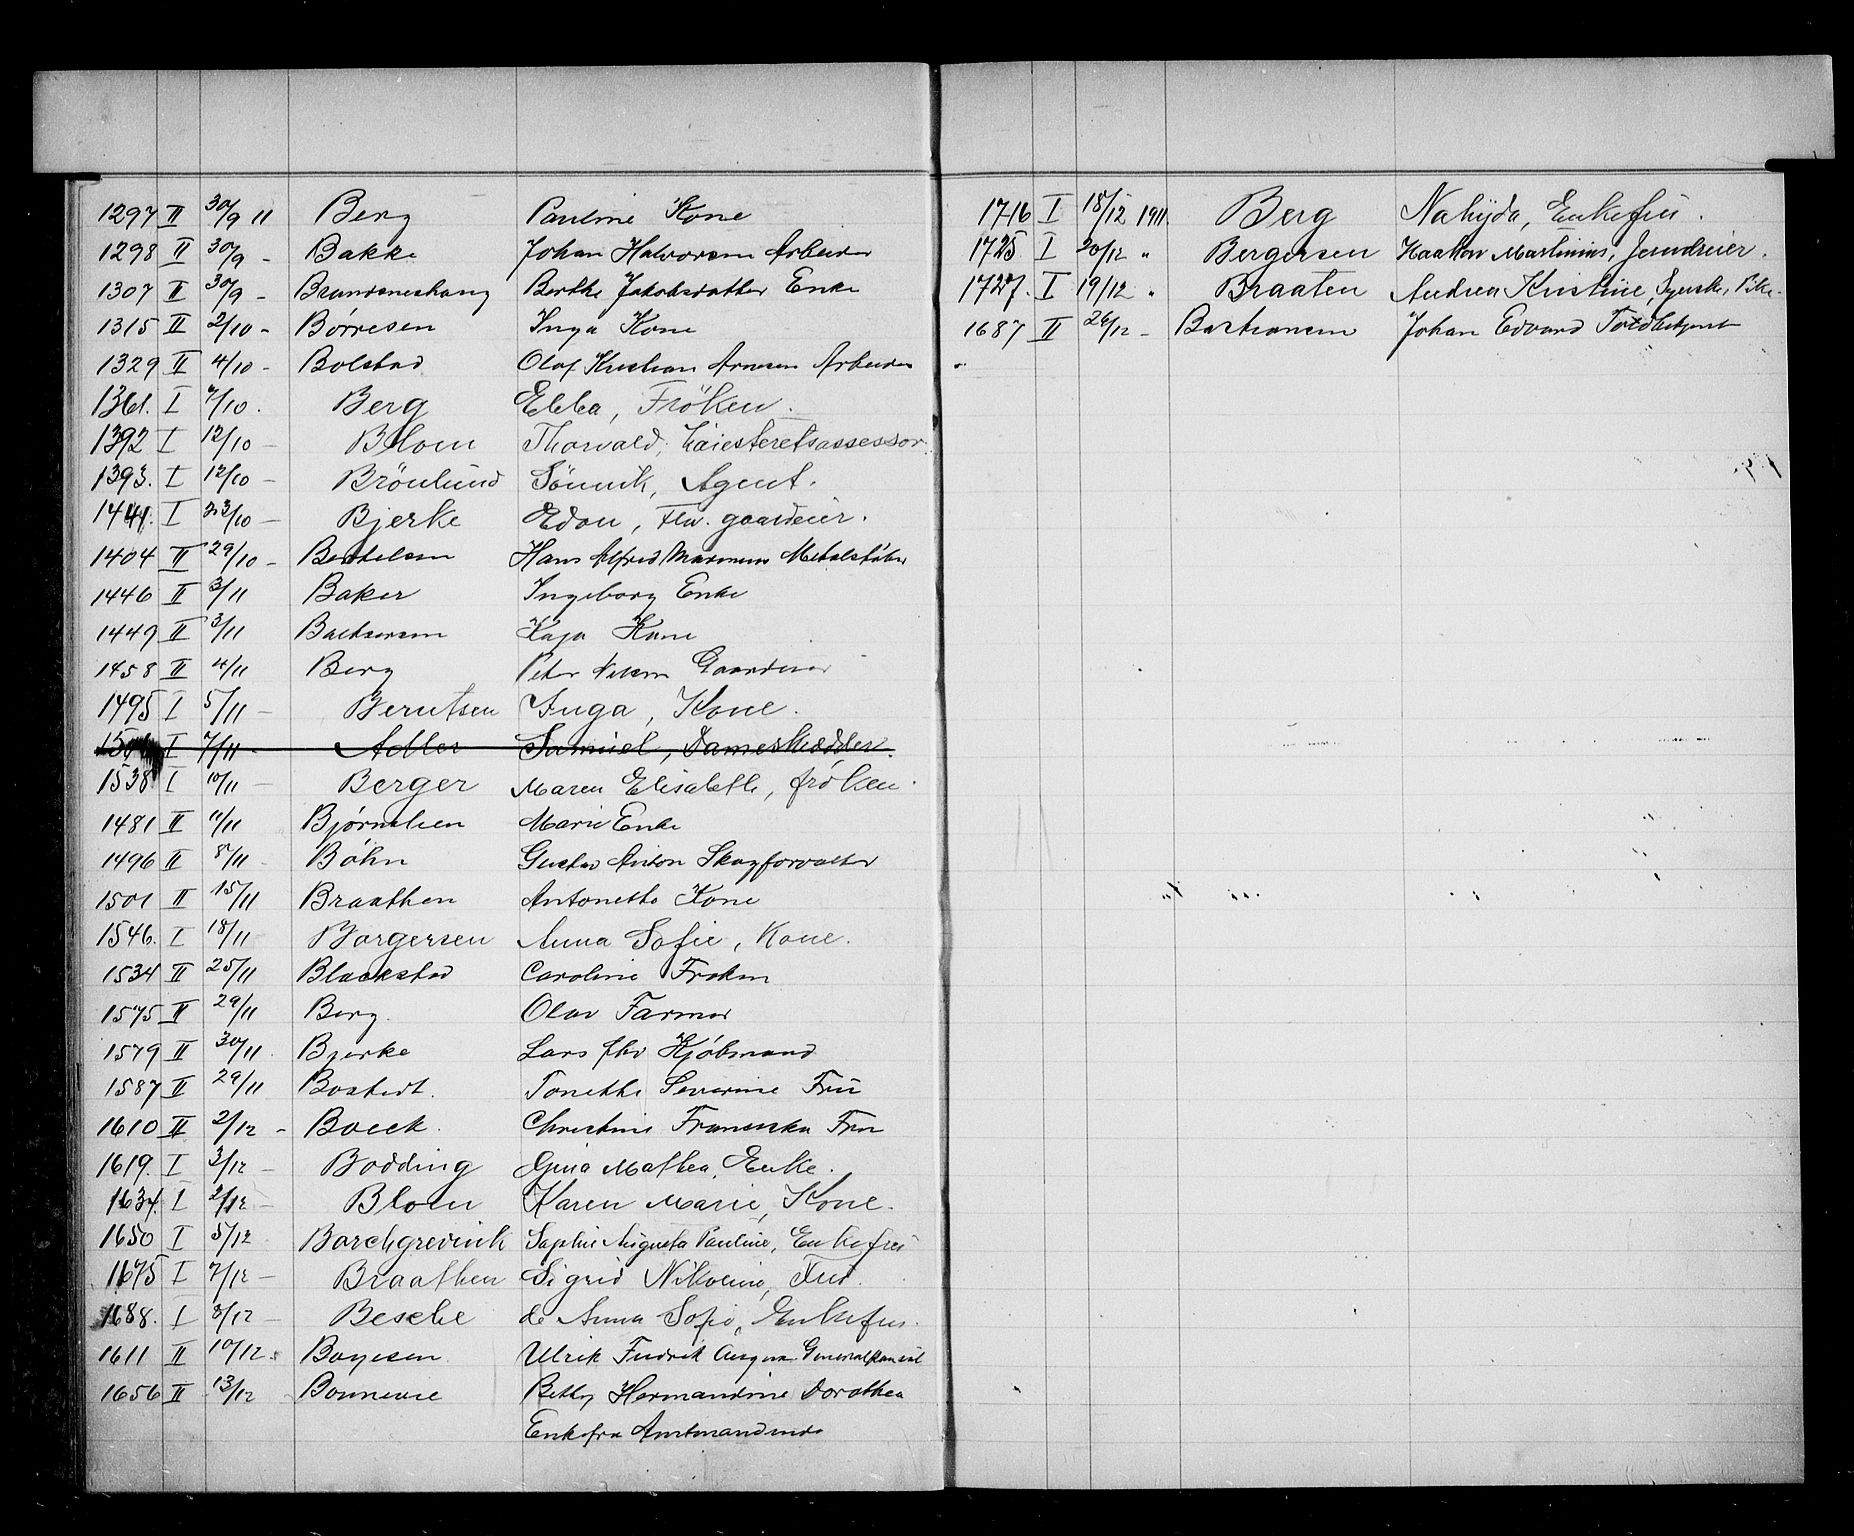 1297 II 30/9 11 Berg Pauline Kone
1298 II 30/9 - Bakke Johan Halvorsen Arbeider
1307 II 30/9 - Brandsneshaug Berthe Jakobsdatter Enke
1315 II 2/10 - Børresen Inga Kone
1329 II 4/10 - Bolstad Olaf Kristian Arnesen Arbeider
1361. I 7/10. Berg Ebba, Fröken.
1392 I 12/10 - Blom Thorvald, höiesteretsassessor.
1393. I 12/10 - Brönlund Sönnik, Agent.
1441. I 23/10 - Bjerke Edon, fhv. gaardeier.
1404 II 29/10 - Berthelsen Hans Alfred Metalstøber
1446 II 3/11 Baker Ingeborg Enke
1449 II 3/11 Baltsersen Kaja Kone
1458 II 4/11 Berg Peter Nilsen Gaardeier
1495 I 5/11 - Berntsen Inga, Kone.
I 7/11 - Adler Samuel, Dameskrædder.
1538 I 10/11 - Berger Maren Elisabeth, fröken.
1481 II 11/11 Bjørnsteen Marie Enke
1496 II 8/11 - Bøhn Gustav Anton Skogforvalter
1501 II 15/11 Braathen Antonette Kone
1546. I 18/11 Borgersen Anna Sofie, Kone.
1534 II 25/11 Blackstad Caroline Frøken
1575 II 29/11 Berg. Olav Farmer
1579 II 30/11. Bjerke Lars fhv Kjøbmand
1587 II 29/11 Bostedt. Tonette Severine Fru
1610 II 2/12 - Boeck. Christine Franciska Fru
1619. I 3/12 - Bodding Gina Mathea, Enke.
1634. I 2/12 - Blom Karen Marie, Kone.
1650 I 5/12 Borchgrevink Sophie Augusta Pauline, Enkefru
1675 I 7/12 - Braathen Sigrid Nikoline, Fru.
1688. I 8/12 - Besche de Anna Sofie, Enkefru.
1611 II 10/12. Boyesen Ulrik Fredrik Generalkonsul
1656 II 13/12 Bonnevie Betty Hermandine Dorothea
Enkefru Amtmandinde
1716 I 18/12 1911. Berg Nahyda, Enkefru.
1725 I 20/12 " Bergersen Haakon Martinius, Jerndreier.
1727. I 19/12 " Braaten Andrea Kristine, Syerske, Pike.
1687 II 26/12 - Bastiansen Johan Edvard Toldbetjent